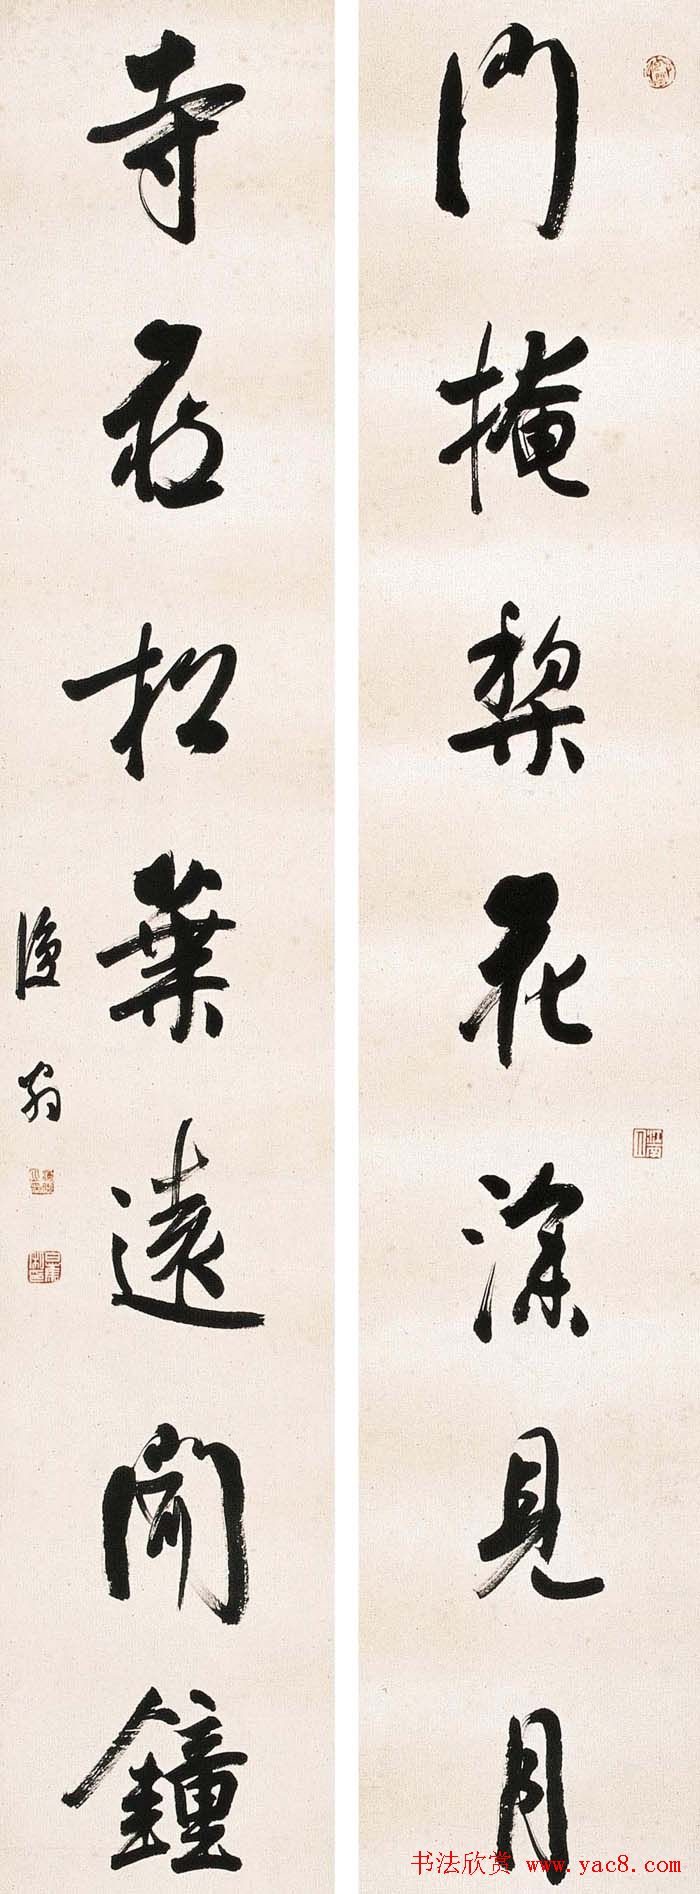 門掩梨花深見月
寺藏松葉遠聞鐘
復翁
书法欣赏 www.yac8.com